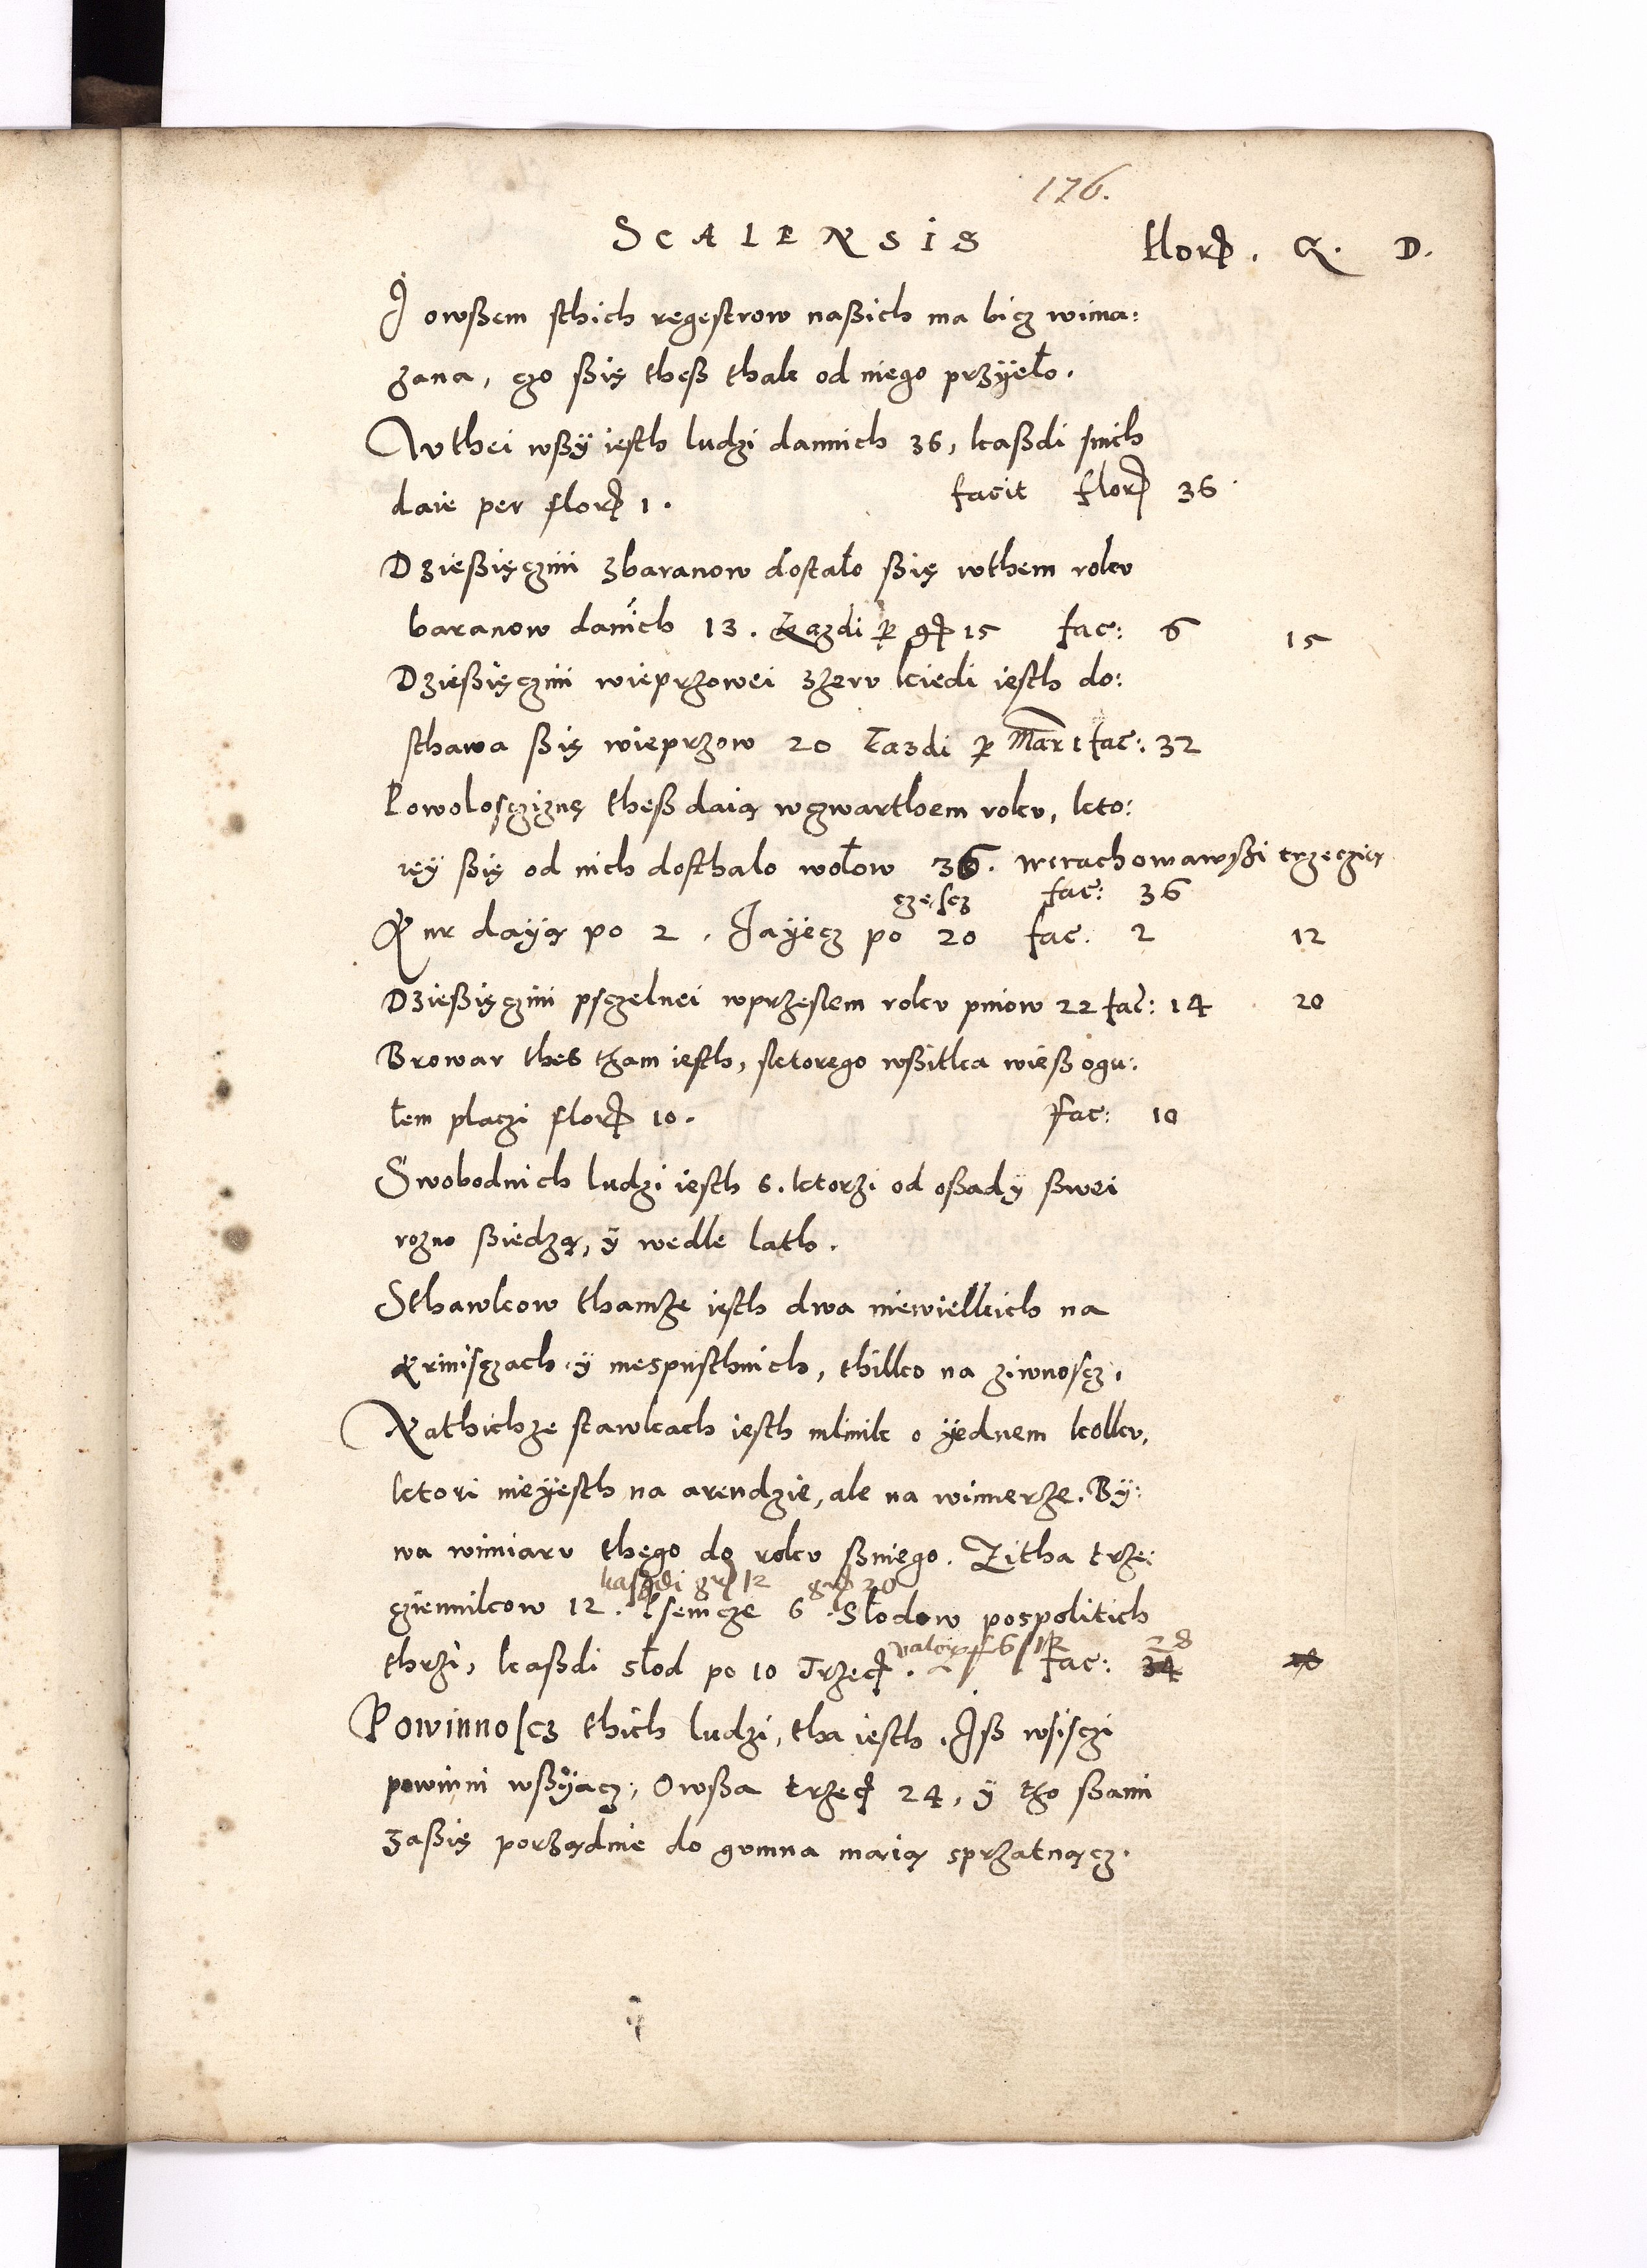 176.
SCALENSIS flor. G. D.
I owßem sthich regestrow naßich ma bicz wima:
zana, czo ßię theß thak od niego przÿęło.
W thei wßÿ iesth ludzi dannich 36, kaßdi snich
daie per flor 1. facit flor 36
Dzießięczini zbaranow dostało ßię wthem roku
baranow danich 13. Kazdi per gr 15 fac: 6 15
Dzießięczini wieprzowei zżeru kiedi iesth do:
sthawa ßię wieprzow 20 kazdi per Mar 1 fac: 32
Powoloscziznę theß daią wczwarthem roku, kto:
reÿ ßię od nich dosthalo wołow 36. wirachowawßi trzeczią
częscz fac: 36
Kur daÿą po 2. Jaÿecz po 20 fac. 2 12
Dzießięczini psczelnei wprzeslem roku pniow 22 fac: 14 20
Browar thes tham iesth, sktorego wßitka wieß ogu:
łem placzi flor 10. Fac: 10
Swobodnich ludzi iesth 6. ktorzi od oßadÿ ßwei
rozno ßiedzą, ÿ wedle lath.
Sthawkow thamże iesth dwa niewielkich na
krinisczach ÿ niespusthnich, thilko na ziwnoscz.
Nathichze stawkach iesth mlinik o ÿednem kolku,
ktori nieÿesth na arendzie, ale na wimerże. Bÿ:
wa wimiaru thego do roku ßniego. Zitha trże:
kaßdi gr 12 gr 20
cziennikow 12. Psenicze 6. Słodow pospolitich
thrżi, kaßdi słod po 10 Trzec. valor f 6 / 12 fac: 28 34
Powinnoscz thich ludzi, tha iesth. Iß wsisczi
powinni wßÿacz, Owßa trzec 24, ÿ tho ßami
zaßię porządnie do gumna maią sprzatnącz.